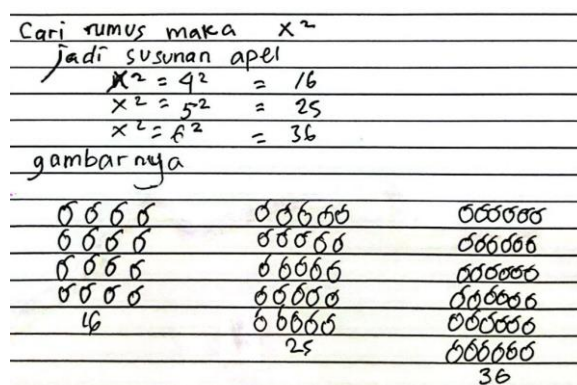 Cari rumus maka x²
jadi susunan apel
x² = 4² = 16
x² = 5² = 25
x² = 6² = 36
gambarnya
16
25
36